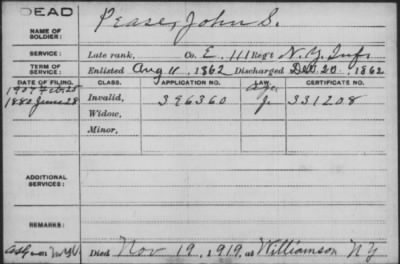 DEAD
NAME OF SOLDIER: Pease, John S.
SERVICE: Late rank, Co. E, 111 Regt N.Y. Inf.
TERM OF SERVICE: Enlisted Aug 11, 1862 Discharged Dec 20, 1862
DATE OF FILING. CLASS. APPLICATION NO. LAW. CERTIFICATE NO.
1907 Feb 25 Age
1880 June 28 Invalid, 396360 J. 331208
Widow,
Minor,
ADDITIONAL SERVICES:
REMARKS:
Died Nov 19, 1919, at Williamson NY